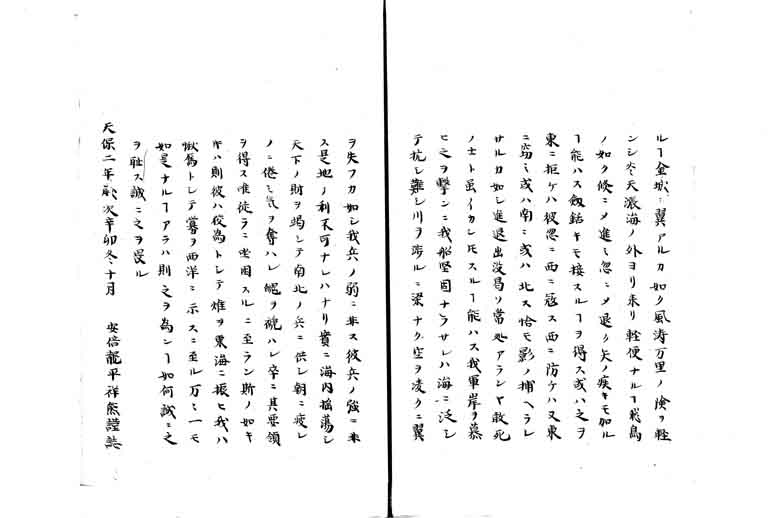 ルヿ金城ニ翼アルカ如ク風涛万里ノ険ヲ軽
ンシ天涯海ノ外ヨリ来リ軽便ナルヿ飛鳥
ノ如ク倏ニメ進ミ忽ニメ退ク矢ノ疾キモ加ル
ヿ能ハス釼銛キモ接スルヿヲ得ス或ハ之ヲ
東ニ拒ケハ彼忽ニ西ニ寇ス西ニ防ケハ又東
ニ窃ミ或ハ南ニ或ハ北ス恰モ影ノ捕ヘラレ
サルカ如シ進退出没曷ソ常処アランヤ敢死
ノ士ト虽イカレスルヿ能ハス我軍岸ヲ慕
ヒ之ヲ撃ンニ我船堅固ナラサレハ海ニ泛シ
テ抗シ難シ川ヲ渉ルニ梁ナク空ヲ凌クニ翼
ヲ失フカ如シ我兵ノ弱ニ非ス彼兵ノ強ニ非
ス是地ノ利不可ナレハナリ實ニ海内揺蕩シ
天下ノ財ヲ竭シテ南北ノ兵ニ供シ朝ニ疲レ
ノニ倦ミ気ヲ奪ハレ魄ヲ褫ハレ卒ニ其要領
ヲ得ス唯徒ラニ坐困スルニ至ラン斯ノ如キ
キハ則彼ハ役為トレテ雄ヲ東海ニ振ヒ我ハ
トレテ辱ヲ西洋ニ示スニ至ル万ニ一モ
如是ナルヿアラハ則之ヲ為シヿ如何誠ニ之
ヲ耻ス誠ニ之ヲ畏ル
天保二年歳次辛卯冬十月　安信龍平祥無謹誌